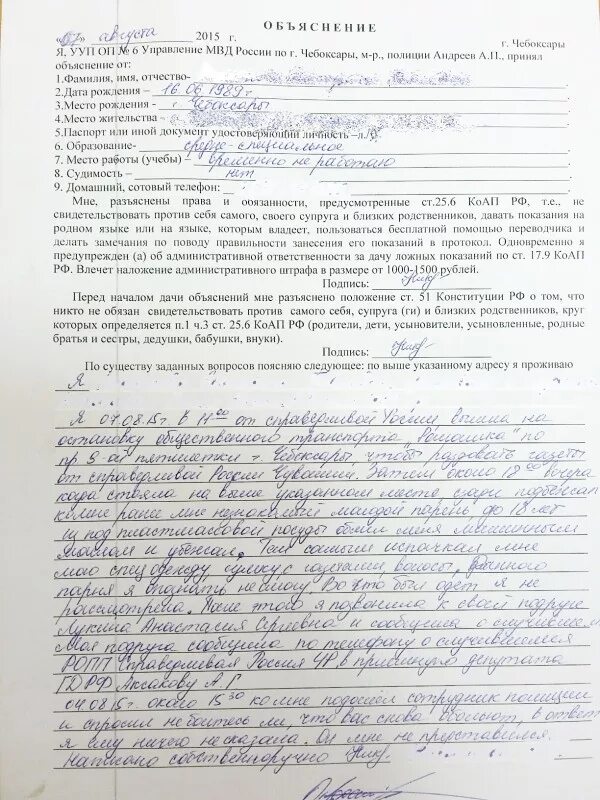 ОБЪЯСНЕНИЕ
«07» августа 2015 г. г. Чебоксары
Я, УУП ОП № 6 Управление МВД России по г. Чебоксары, м-р., полиции Андреев А.П., принял
объяснение от:
1.Фамилия, имя, отчество-
2.Дата рождения – 16.06.1989
3.Место рождения - г. Чебоксары
4.Место жительства -
5.Паспорт или иной документ удостоверяющий личность –л/о
6. Образование- средне-специальное
7. Место работы (учебы) – временно не работаю
8. Судимость – нет
9. Домашний, сотовый телефон:
Мне, разъяснены права и обязанности, предусмотренные ст.25.6 КоАП РФ, т.е., не
свидетельствовать против себя самого, своего супруга и близких родственников, давать показания на
родном языке или на языке, которым владеет, пользоваться бесплатной помощью переводчика и
делать замечания по поводу правильности занесения его показаний в протокол. Одновременно я
предупрежден (а) об административной ответственности за дачу ложных показаний по ст. 17.9 КоАП
РФ. Влечет наложение административного штрафа в размере от 1000-1500 рублей.
Подпись:
Перед началом дачи объяснений мне разъяснено положение ст. 51 Конституции РФ о том, что
никто не обязан свидетельствовать против самого себя, супруга (ги) и близких родственников, круг
которых определяется п.1 ч.3 ст. 25.6 КоАП РФ (родители, дети, усыновители, усыновленные, родные
братья и сестры, дедушки, бабушки, внуки).
Подпись:
По существу заданных вопросов поясняю следующее: по выше указанному адресу я проживаю
Я
Я 07.08.15г. в 11 00 от справедливой России вышла на
остановку общественного транспорта "Ромашка" по
пр 9-ой пятилетки г. Чебоксары, чтобы раздовать газеты
от справедливой России Чувашии. Затем около 12 00
кода стояла на выше указанном месте, сзади подбежал
ко мне ранее мне незнакомый молодой парень до 18 лет
из под пластмассовой посуды облил меня машинным
маслом и убежал. Тем самым испачкал мне
мою спец одежду, сумку с газетами, волосы. Данного
парня я опознать не смогу. Во что был одет я не
рассмотрела. После этого я позвонила к своей подруге
Лукина Анастасия Сергеевна и сообщила о случившемся
Моя подруга сообщила по телефону о случившемся
РОПП Справедливая Россия ЧР в приемную депутата
ГД РФ Аксакову А Г
07.08.15г. около 15 30 ко мне подошел сотрудник полиции
и спросил не боитесь ли, что вас снова обольют, в ответ
я ему ничего не сказала. Он мне не представился.
Написано собственноручно